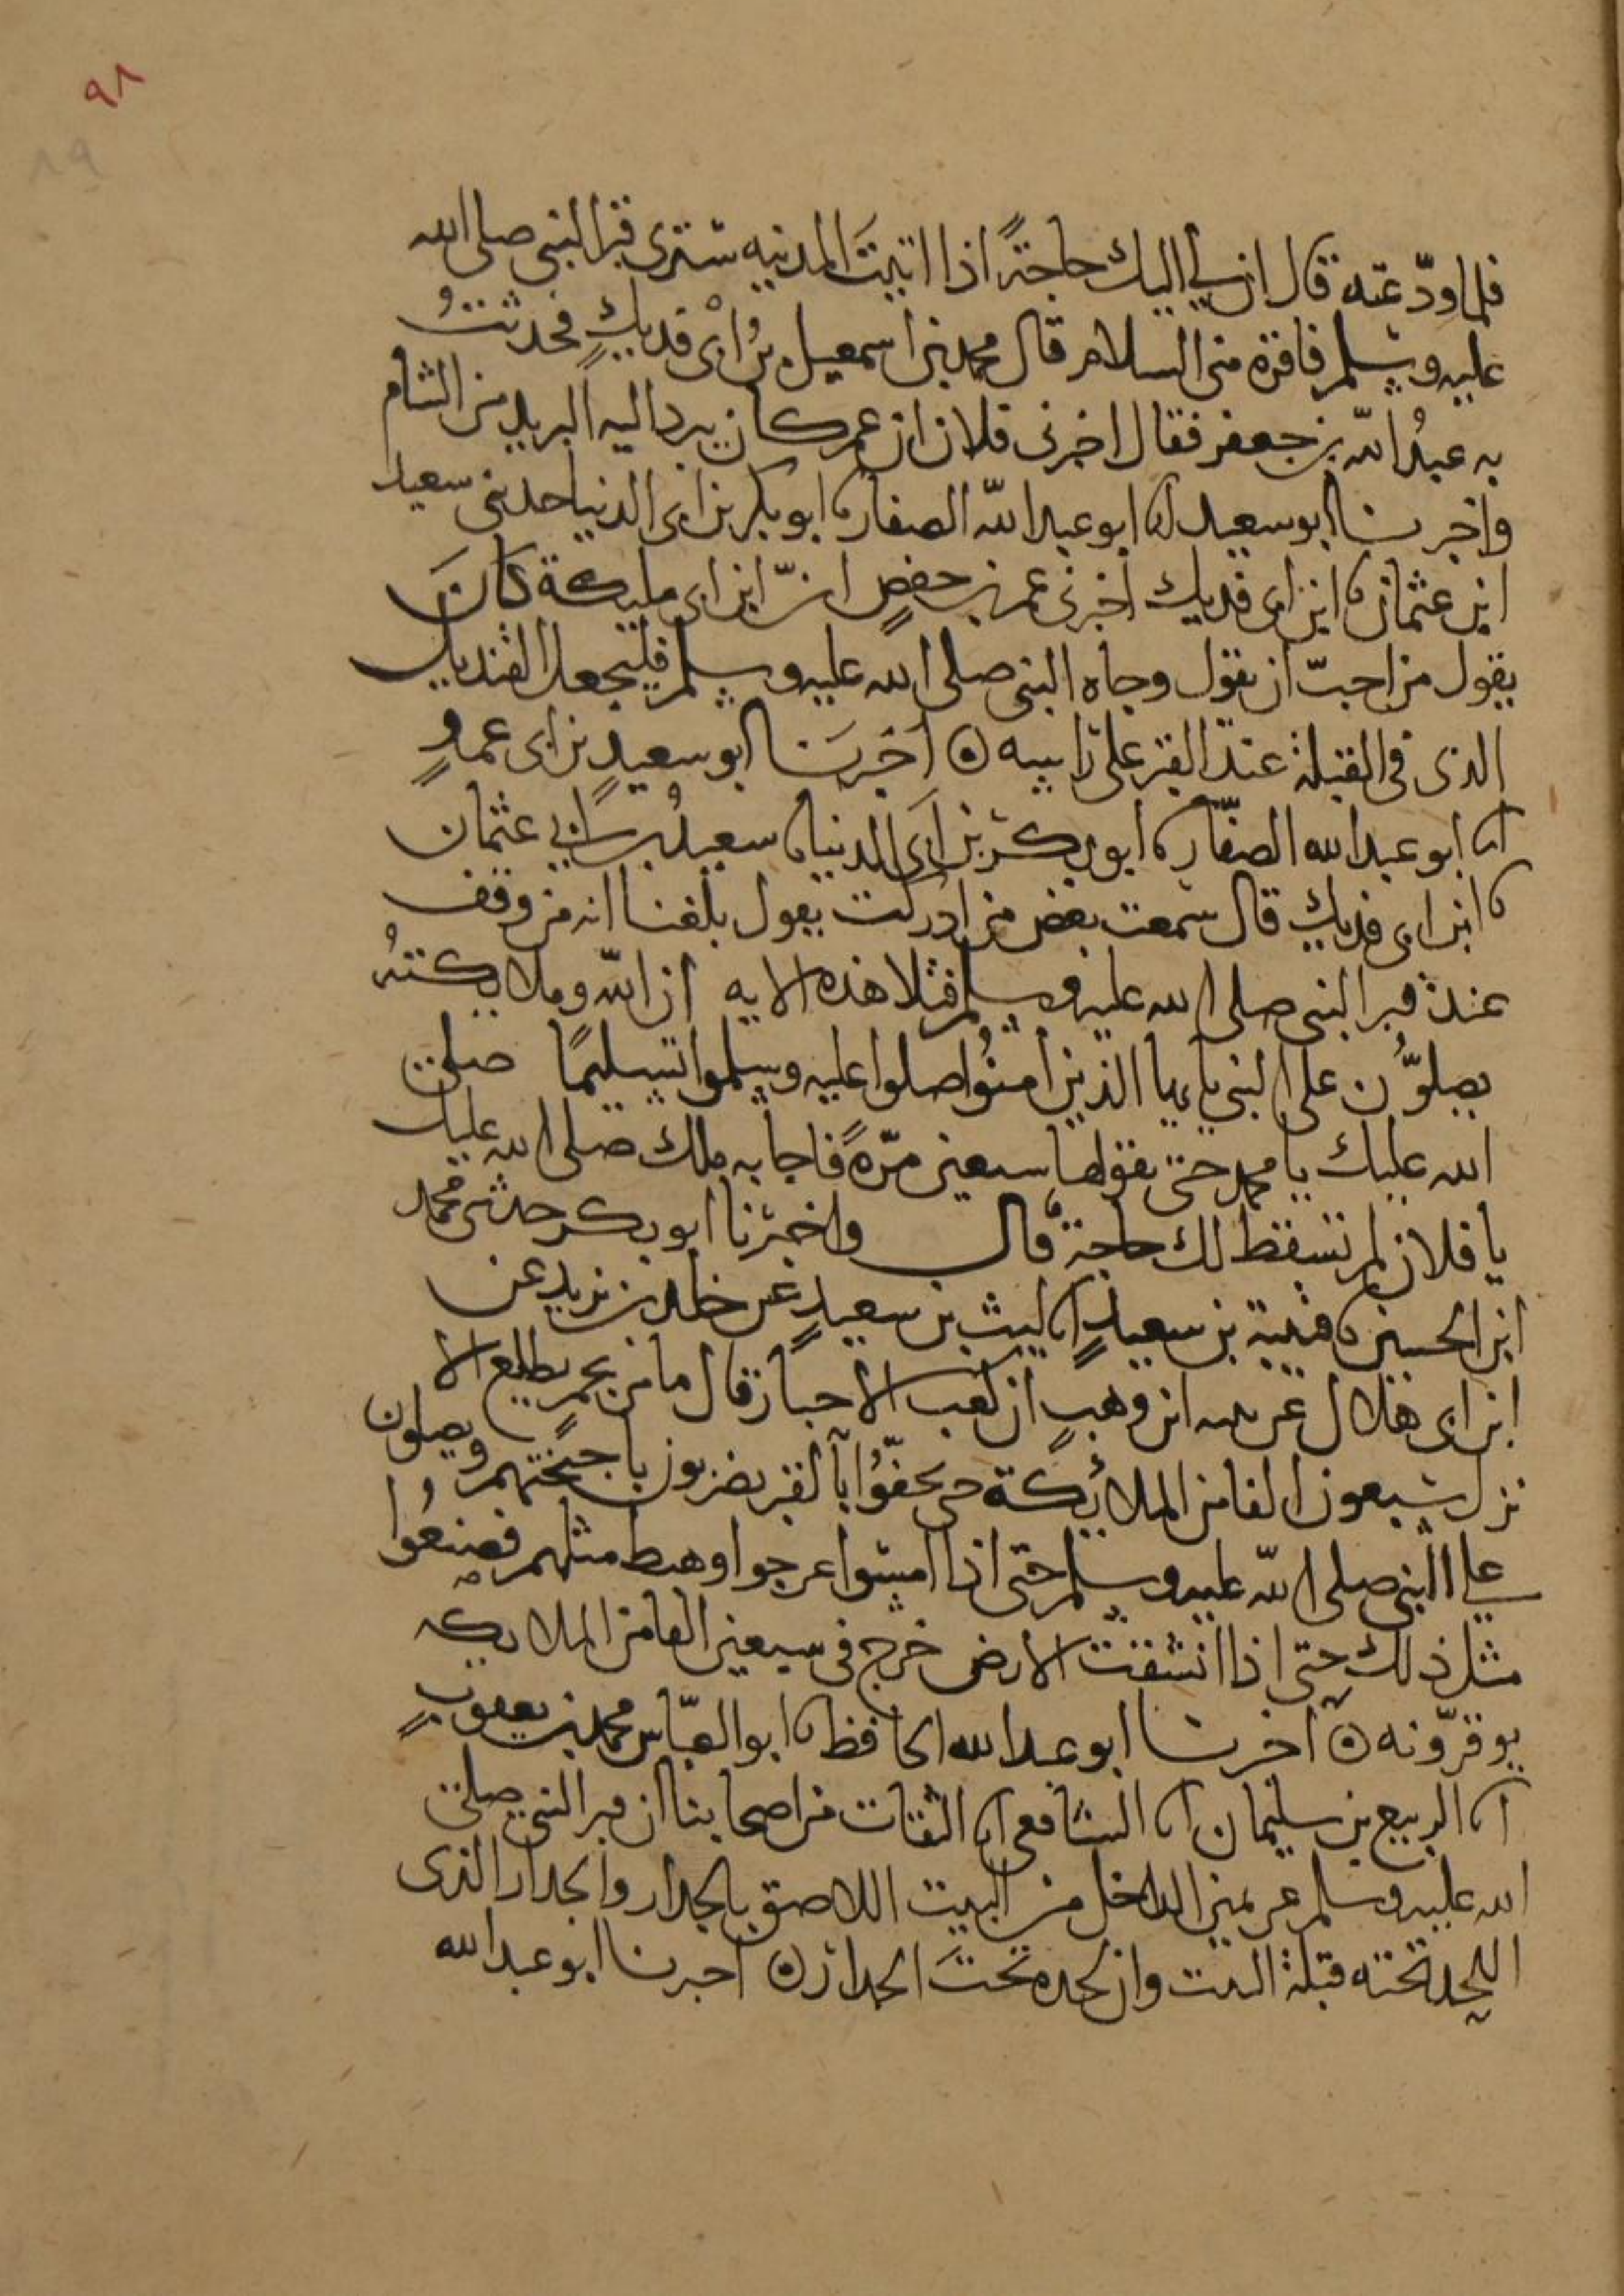 ٩٨
٨٩
فلما ودّعته قال ان لي اليك حاجةً اذا اتيتَ المدينه سترى قبر النبي صلى الله
عليه وسلم فاقره مني السلام قال محمد بن اسمعيل بنُ ابىْ فديكٍ فحدثتُ
به عبدُ الله بن جعفر فقال اخبرني فلان ان عمر كان يبرد اليه البريد من الشام
واخبرنا ابو سعيد انا ابو عبد الله الصفار نا ابو بكر بن ابى الدنيا حدثني سعيد
ابن عثمان نا ابن ابى فديك اخبرنى عمر بن حفصٍ انّ ابن ابى مليكة كانَ
يقول من احبّ ان يقول وجاه النبى صلى الله عليه وسلم فليجعل القنديل
الذى فى القبلة عند القبر على راسه ۞ اخبرَنا ابو سعيدٍ بن ابى عمروٍ
انا ابو عبد الله الصفّار نا ابو بكر بن ابى الدنيا نا سعيدُ بن عثمان
نا ابن ابى فديك قال سمعت بعض من ادركت يقول بلغنا انه من وقف
عند قبر النبى صلى الله عليه وسلم فتلا هذه الايه ان الله وملايكتهُ
يصلوُّن على النبي يا ايها الذين امنوُا صلوا عليه وسلموا تسليمًا صلى
الله عليك يا محمد حتى يقولها سبعين مرّةً فاجابه ملك صلى الله عليك
يا فلان لم تسقط لك حاجة قال واخبرنا ابو بكر حدثنى محمد
ابن الحسين نا قتيبة بن سعيدٍ انا ليث بن سعيدٍ عن خلد بن يزيد عن
ابن ابى هلال عن نبيه ابن وهبٍ ان كعب الاحبار قال ما من نجمٍ يطلع الا
نزل سبعون الفا من الملائكة حتى يحفّوُا بالقبر يضربون باجنحتهم ويصلون
على النبى صلى الله عليه وسلم حتى اذا امسَوا عرجوا وهبط مثلهم فصنعُوا
مثل ذلك حتى اذا انشقت الارض خرج فى سبعين الفا من الملايكه
يوقرّونه ۞ اخبرنا ابو عبد الله الحافظ نا ابو العبّاس محمد بن يعقوبٍ
انا الربيع بن سليمان انا الشافعى انا الثقات من اصحابنا ان قبر النبي صلى
الله عليه وسلم عن يمين الداخل من البيت اللاصق بالجدار والجدار الذى
اللحد تحته قبلة البيت وان لحده تحتَ الجدار ۞ اخبرنا ابو عبد الله